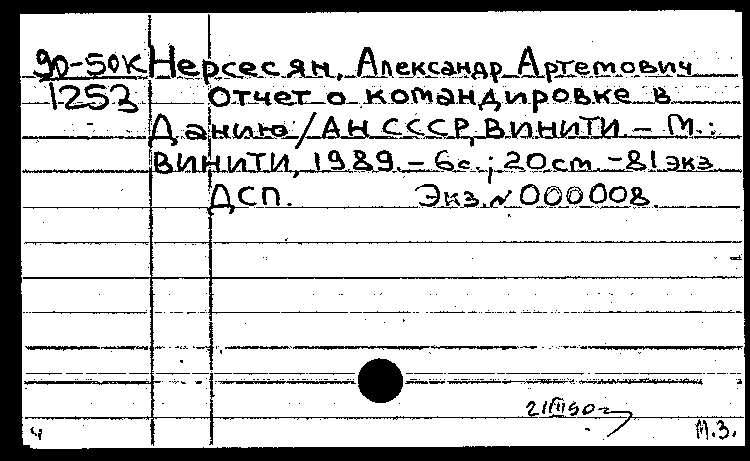 90-50К Нерсесян, Александр Артемович
1253 Отчет о командировке в
Данию / АН СССР, ВИНИТИ. – М.:
ВИНИТИ, 1989. – 6 с.; 20 см. – 81 экз
ДСП. Экз. № 000008.
М.З.